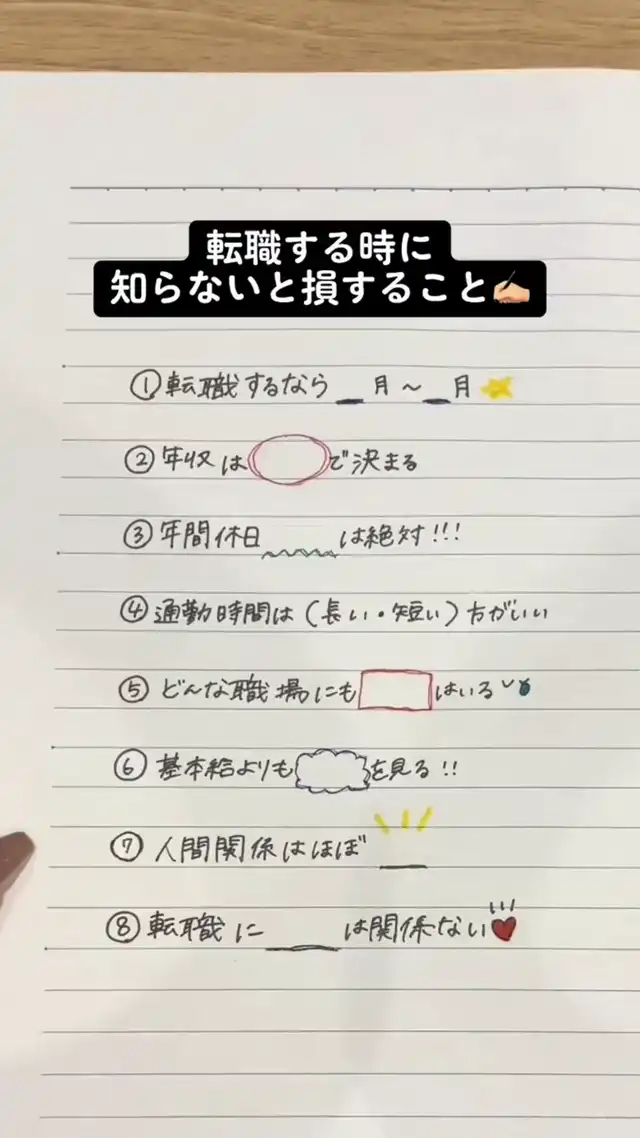 転職する時に
知らないと損すること✍🏻
①転職するなら＿月～＿月
②年収は で決まる
③年間休日 は絶対!!!
④通勤時間は(長い・短い)方がいい
⑤どんな職場にも はいる
⑥基本給よりも を見る!!
⑦人間関係はほぼ＿
⑧転職に＿は関係ない